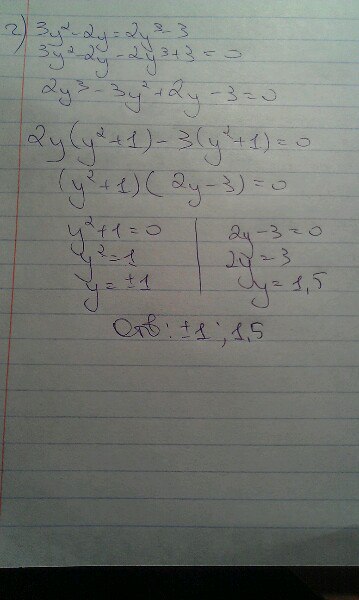 г) 3y² - 2y = 2y³ - 3
3y² - 2y - 2y³ + 3 = 0
2y³ - 3y² + 2y - 3 = 0
2y(y² + 1) - 3(y² + 1) = 0
(y² + 1)(2y - 3) = 0
y² + 1 = 0 | 2y - 3 = 0
y² = 1 | 2y = 3
y = ±1 | y = 1,5
Отв: ±1; 1,5